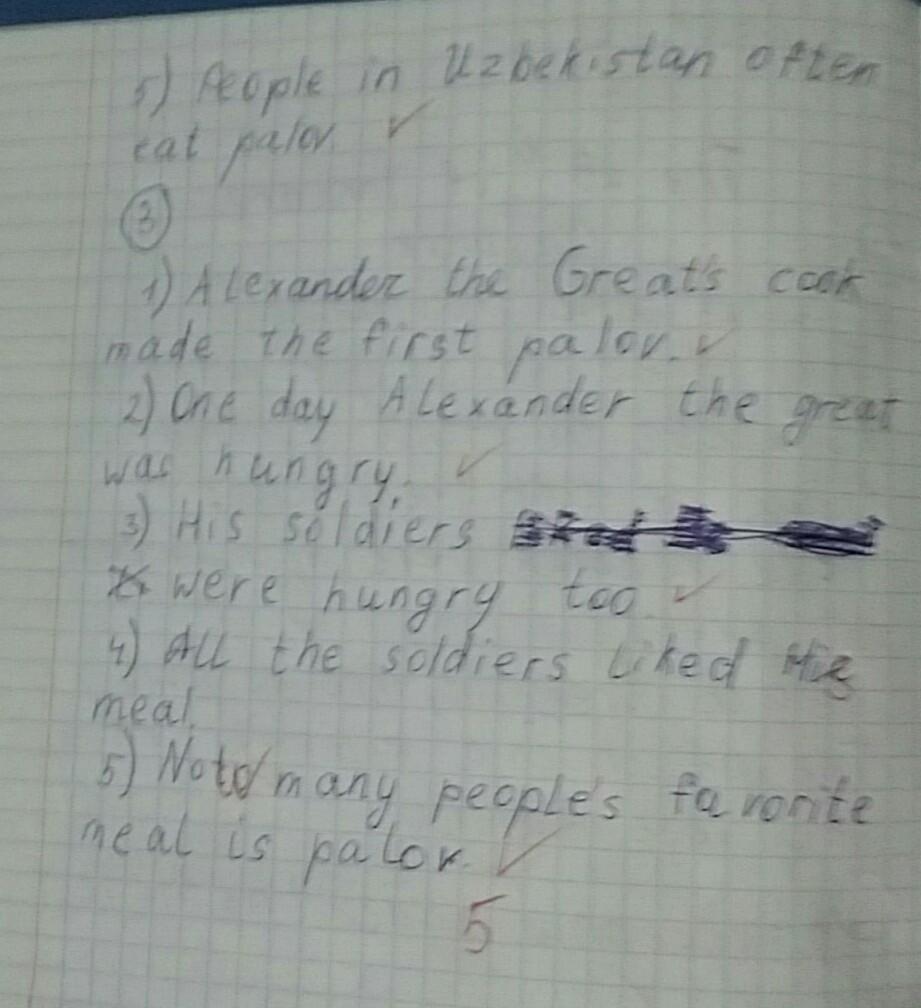 5) People in Uzbekistan often
eat palov.
3
1) Alexander the Great's cook
made the first palov.
2) One day Alexander the great
was hungry.
3) His soldiers
were hungry too
4) All the soldiers liked
meal.
5) many people's favorite
meal is palov.
5